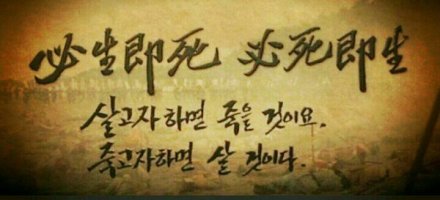 必生即死 必死即生
살고자 하면 죽을 것이요,
죽고자하면 살 것이다.